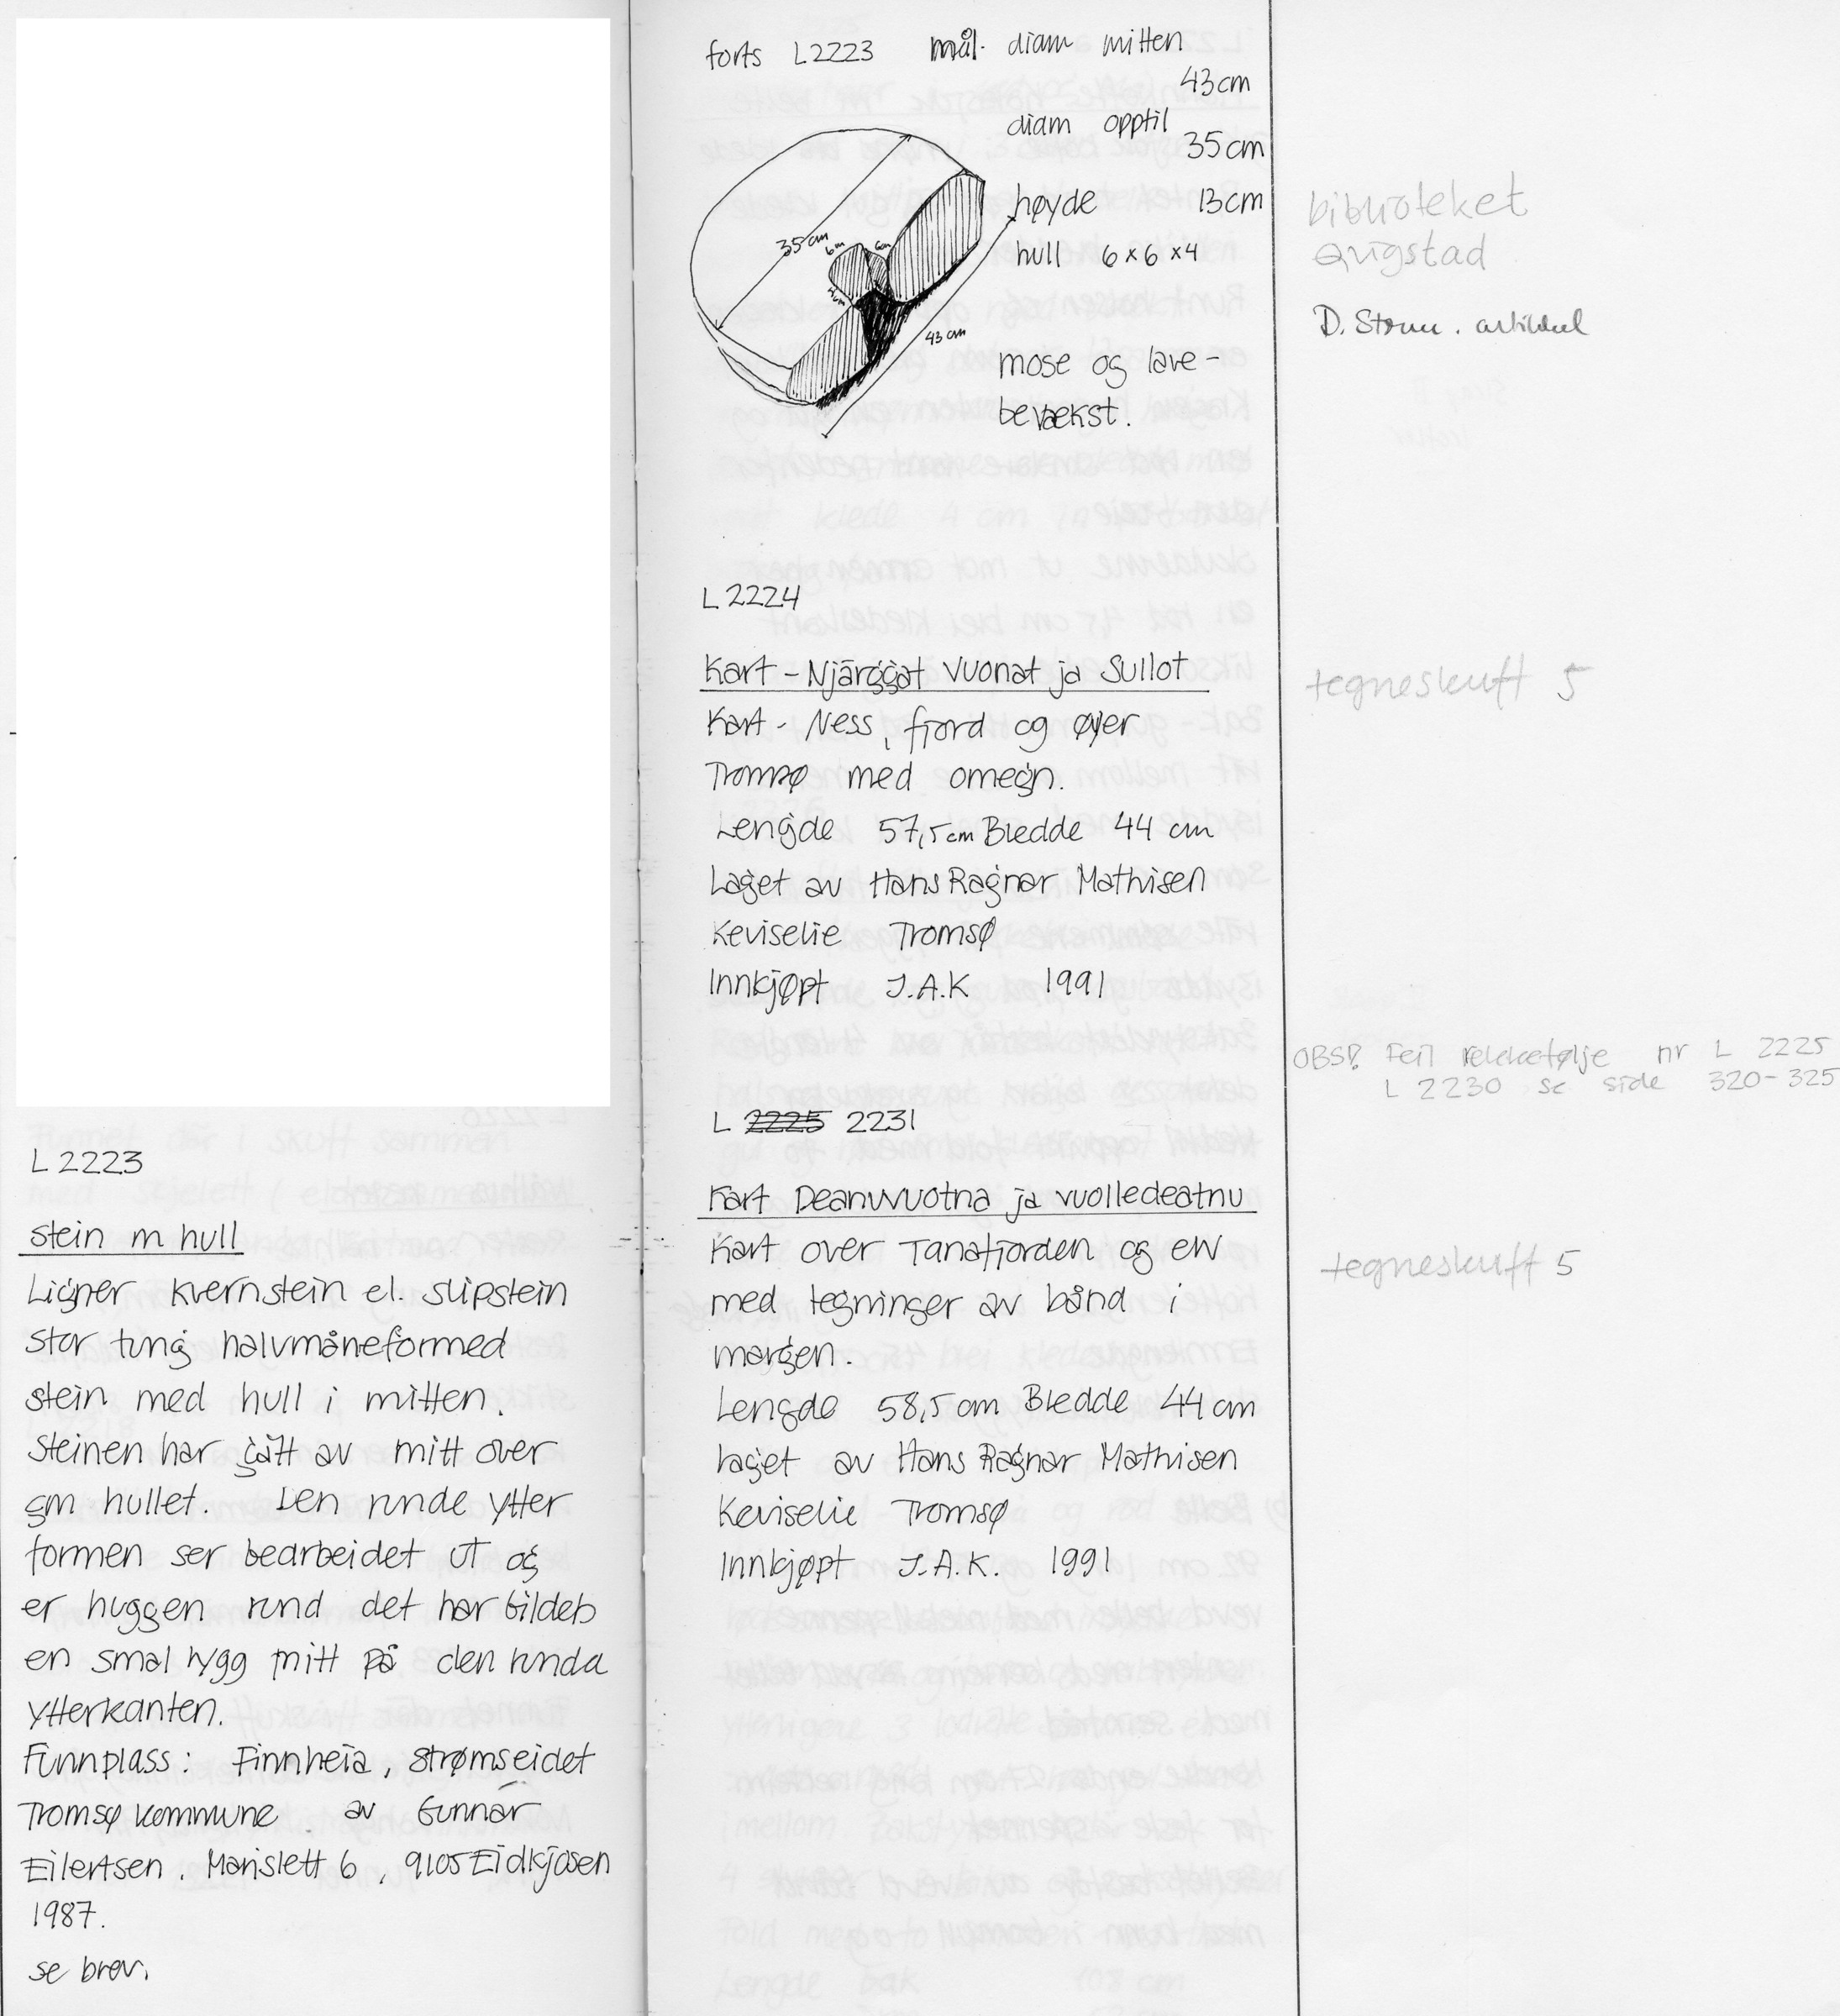 L 2223
stein m hull
Ligner kvernstein el. slipstein
stor tung halvmåneformed
stein med hull i mitten.
Steinen har gått av mitt over
gm hullet. Den runde ytter
formen ser bearbeidet ut og
er huggen rund det har bildeb
en smal rygg mitt på den runda
ytterkanten.
Funnplass: Finnheia, Strømseidet
Tromsø kommune av Gunnar
Eilertsen. Marislett 6, 9105 Eidkjosen
1987.
se brev.
forts L2223 mål. diam mitten
43 cm
diam opptil
35 cm
høyde 13 cm
hull 6 x 6 x 4
35 cm
6 cm
6 cm
4 cm
43 cm
mose og lave-
bevækst.
biblioteket
Qvigstad
D. Storm. artikkel
L 2224
Kart - Njárggat Vuonat ja Sullot
Kart - Ness, fjord og øyer
Tromsø med omegn.
Lengde 57,5 cm Bredde 44 cm
Laget av Hans Ragnar Mathisen
Keviselie Tromsø
Innkjøpt J.A.K 1991
tegneskuff 5
OBS! Feil rekkefølje nr L 2225
L 2230 se side 320-325
L 2225 2231
Kart Deanuvuotna ja vuolledeatnu
Kart over Tanafjorden og elv
med tegninger av bånd i
margen.
Lengde 58,5 cm Bredde 44 cm
laget av Hans Ragnar Mathisen
Keviselie Tromsø
Innkjøpt J.A.K. 1991
tegneskuff 5